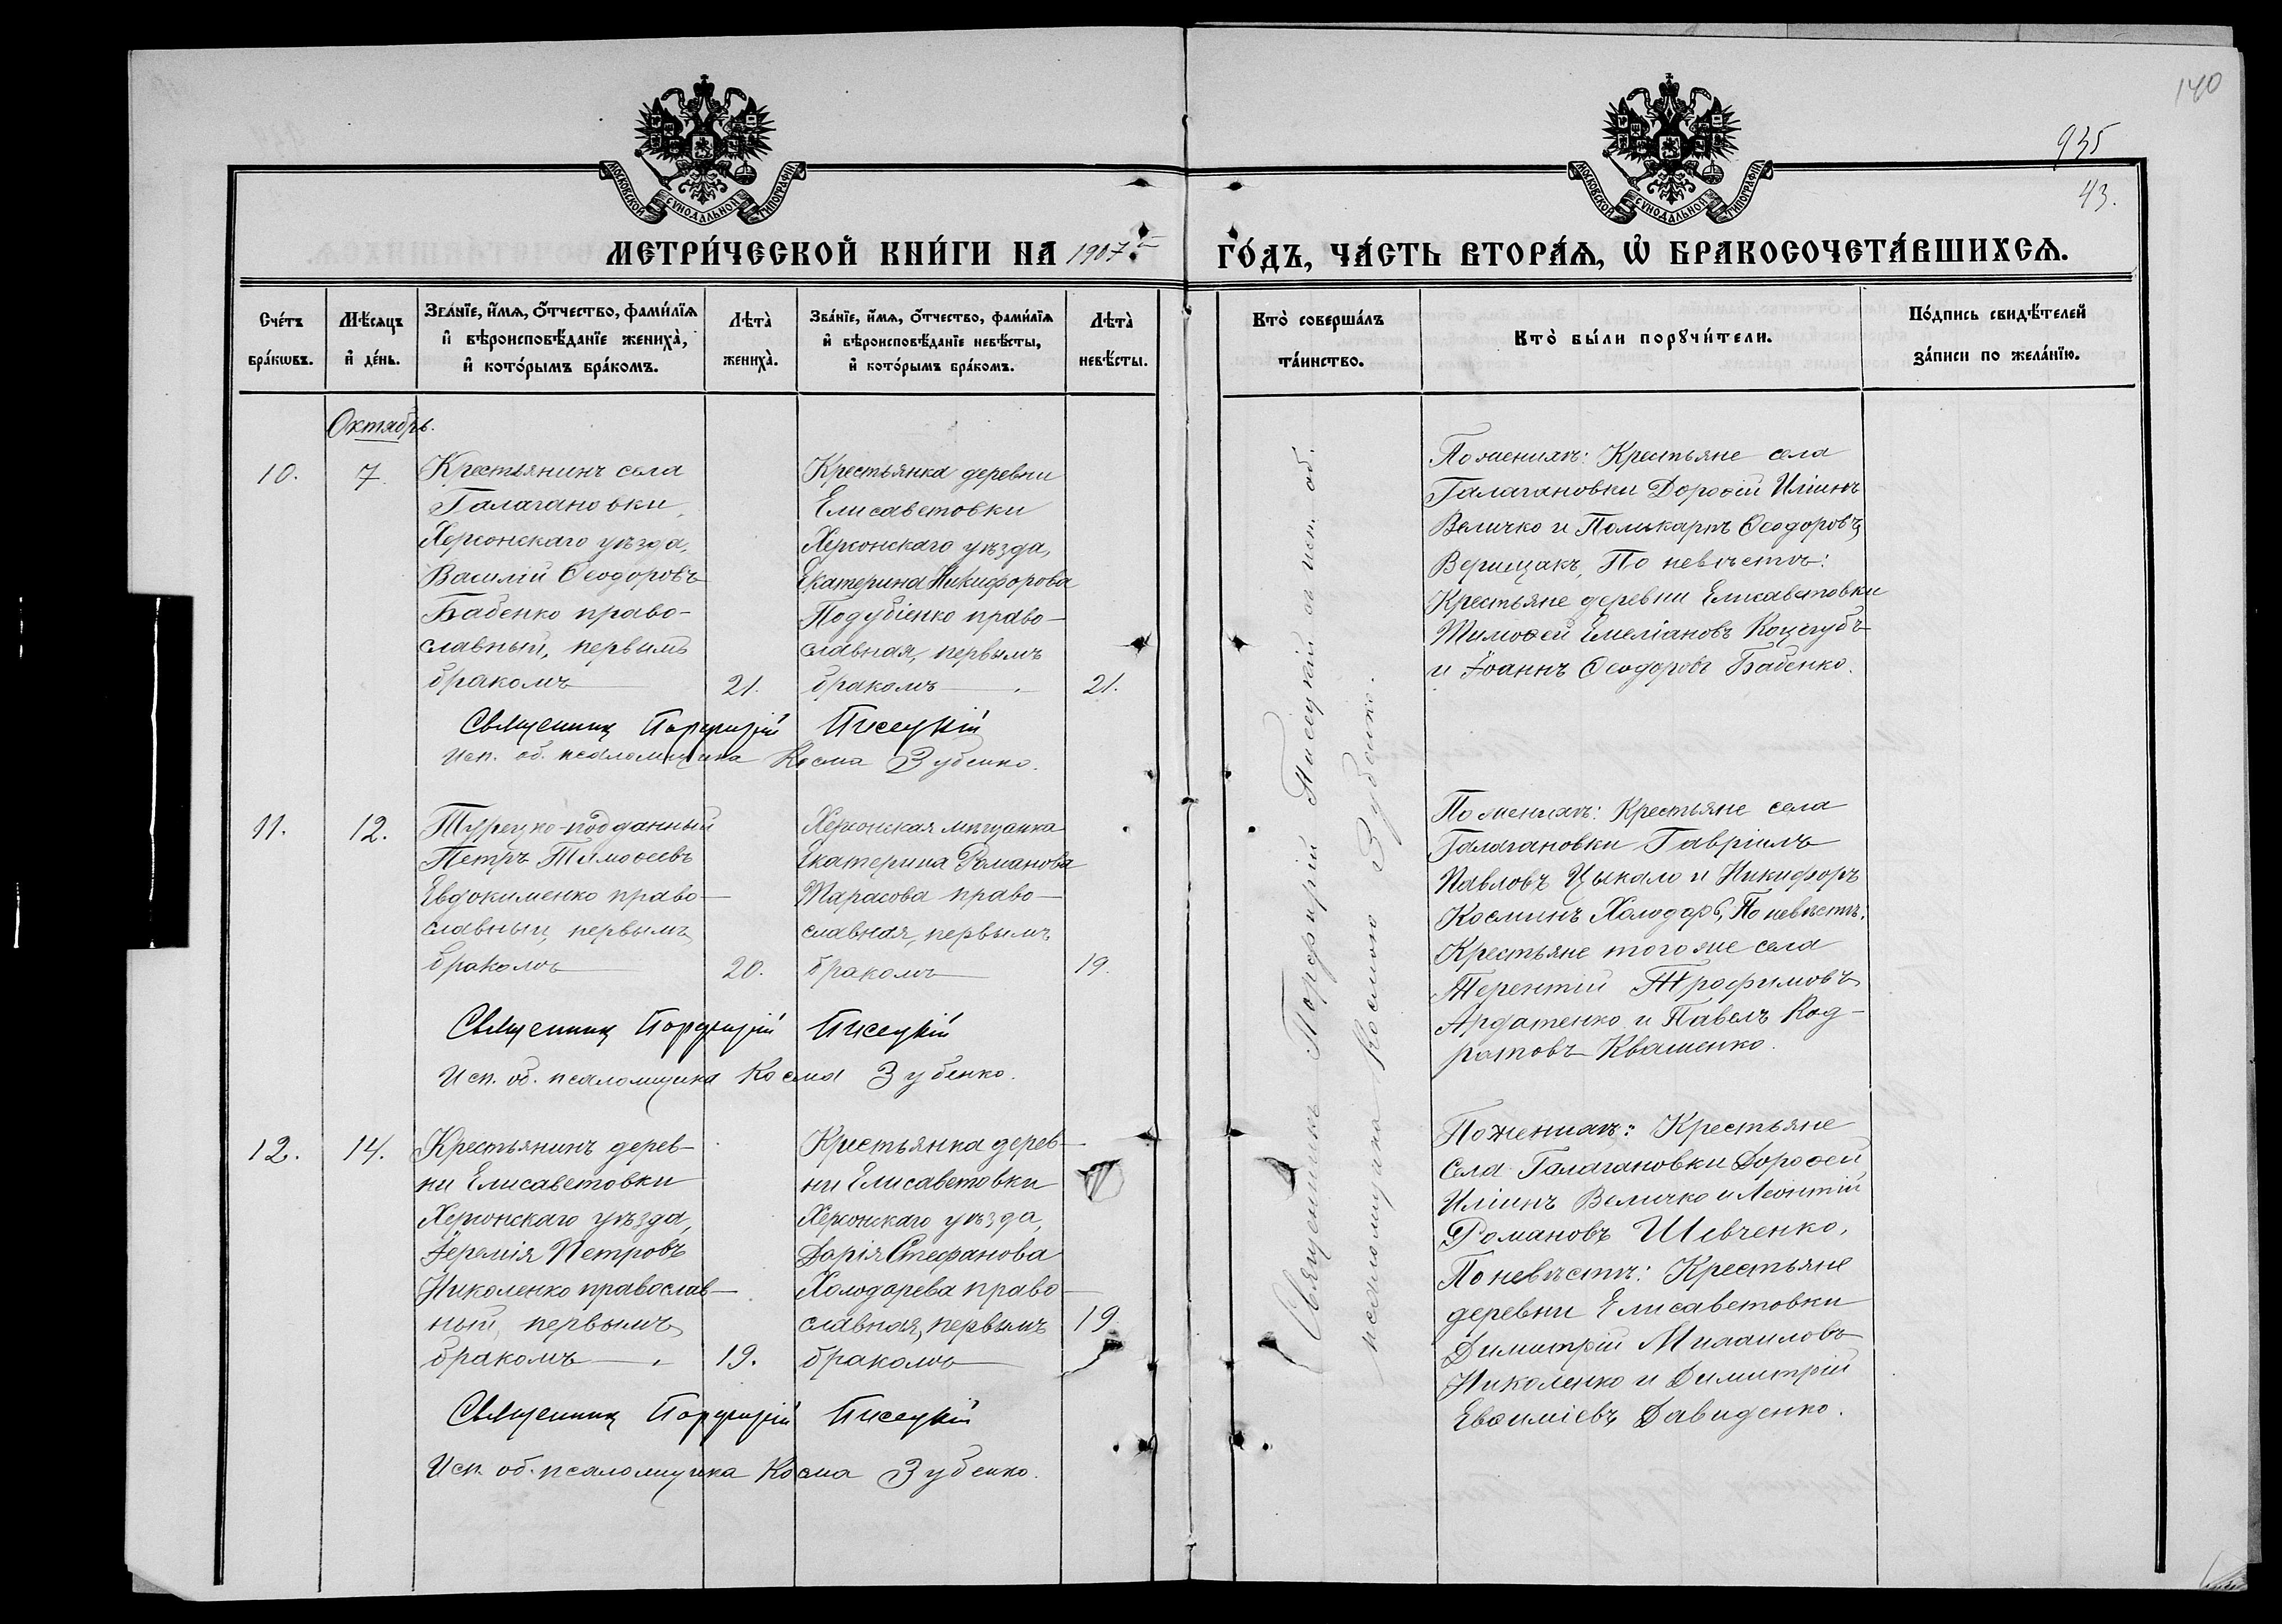 140
935
43.
МОСКОВСКОЙ СУНОДАЛЬНОЙ ТИПОГРАФІИ
МОСКОВСКОЙ СУНОДАЛЬНОЙ ТИПОГРАФІИ
МЕТРИ́ЧЕСКОЙ КНИ́ГИ НА 1907 ГО́ДЪ, ЧА́СТЬ ВТОРА́Ѧ, Ѽ БРАКОСОЧЕТА́ВШИХСѦ.
Сче́тъ бра́кѡвъ.
Мѣ́сѧцъ и҆ де́нь.
Зва́нїе, и҆́мѧ, ѻ҆́тчество, фами́лїѧ
и҆ вѣроисповѣ́данїе жениха̀,
и҆ кото́рымъ бра́комъ.
Лѣта̀ жениха̀.
Зва́нїе, и҆́мѧ, ѻ҆́тчество, фами́лїѧ
и҆ вѣроисповѣ́данїе невѣ́сты,
и҆ кото́рымъ бра́комъ.
Лѣта̀ невѣ́сты.
Кто̀ соверша́лъ
та́инство.
Кто̀ бы́ли порꙋчи́тели.
По́дпись свидѣ́телей
за́писи по жела́нїю.
Октябрь.
10.
7
Крестьянинъ села
Галагановки,
Херсонскаго уѣзда,
Василій Ѳеодоровъ
Бабенко право-
славный, первымъ
бракомъ
21.
Крестьянка деревни
Елисаветовки
Херсонскаго уѣзда,
Екатерина Никифорова
Подубіенко право-
славная, первымъ
бракомъ
21.
Священникъ Порфирій Писецкій
Исп. об. псаломщика Косма Зубенко.
По женихѣ: Крестьяне села
Галагановки Дороѳей Иліинъ
Величко и Поликарпъ Ѳеодоровъ
Верещакъ, По невѣстѣ:
Крестьяне деревни Елисаветовки
Тимоѳей Емеліановъ Коцегубъ
и Іоаннъ Ѳеодоровъ Бабенко.
Священникъ Порфирій Писецкій съ исп. об.
псаломщика Космою Зубенко.
11.
12.
Турецко-подданный
Петръ Тимоѳеевъ
Евдокименко право-
славный, первымъ
бракомъ
20.
Херсонская мѣщанка
Екатерина Романова
Тарасова право-
славная, первымъ
бракомъ
19.
Священникъ Порфирій Писецкій
Исп. об. псаломщика Косма Зубенко.
По женихѣ: Крестьяне села
Галагановки Гавріилъ
Павловъ Цыкало и Никифоръ
Косминъ Холодарь, По невѣстѣ:
Крестьяне того же села
Терентій Трофимовъ
Ардатенко и Павелъ Код-
ратовъ Квашенко.
12.
14.
Крестьянинъ дерев-
ни Елисаветовки
Херсонскаго уѣзда,
Іеремія Петровъ
Николенко православ-
ный, первымъ
бракомъ
19.
Крестьянка дерев-
ни Елисаветовки
Херсонскаго уѣзда,
Дарія Стефанова
Холодарева право-
славная, первымъ
бракомъ
19
Священникъ Порфирій Писецкій
Исп. об. псаломщика Косма Зубенко.
По женихѣ: Крестьяне
Села Галагановки Дороѳей
Иліинъ Величко и Леонтій
Романовъ Шевченко,
По невѣстѣ: Крестьяне
деревни Елисаветовки
Димитрій Михаиловъ
Николенко и Димитрій
Евѳиміевъ Давиденко.